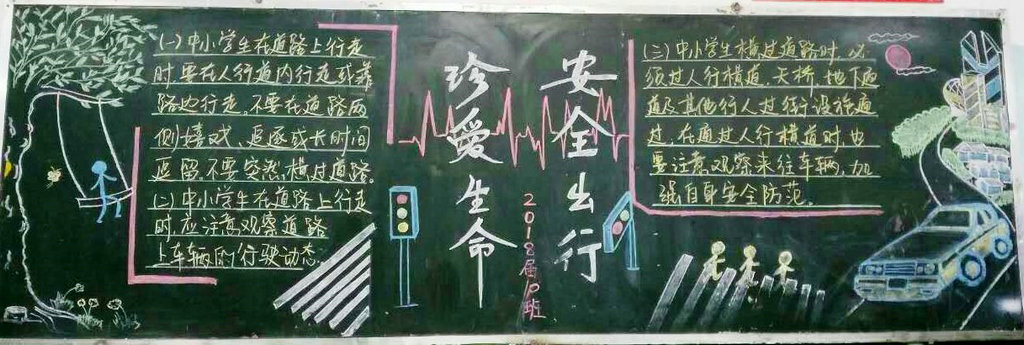 (一)中小学生在道路上行走
时,要在人行道内行走或靠
路边行走,不要在道路两
侧嬉戏、追逐或长时间
逗留,不要突然横过道路。
(二)中小学生在道路上行走
时,应注意观察道路
上车辆的行驶动态。
珍爱生命
安全出行
2018届 班
(三)中小学生横过道路时,必
须过人行横道、天桥、地下通
道及其他行人过街设施通
过,在通过人行横道时,也
要注意观察来往车辆,加
强自身安全防范。